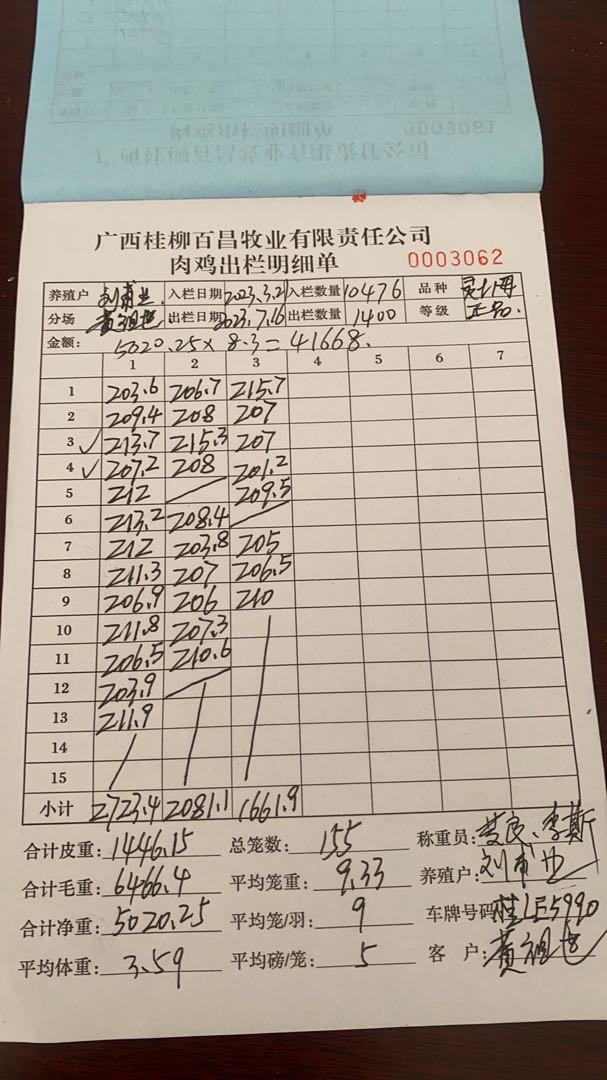 广西桂柳百昌牧业有限责任公司
肉鸡出栏明细单 0003062
养殖户 入栏日期 2023.3.21 入栏数量 10476 品种
分场 黄祖也 出栏日期 2023.7.16 出栏数量 1400 等级 正品.
金额: 5020.25×8.3=41668.
1 2 3 4 5 6 7
1 203.6 206.7 215.7
2 209.4 208 207
3 ✓ 213.7 215.3 207
4 ✓ 207.2 208 201.2
5 212 209.5
6 213.2 208.4
7 212 203.8 205
8 211.3 207 206.5
9 206.9 206 210
10 211.8 207.3
11 206.5 210.6
12 203.9
13 211.9
14
15
小计 2723.4 2081.1 1661.9
合计皮重: 1446.15 总笼数: 155 称重员:
合计毛重: 6466.4 平均笼重: 9.33 养殖户:
合计净重: 5020.25 平均笼/羽: 9 车牌号码: 桂LE5990
平均体重: 3.59 平均磅/笼: 5 客 户: 黄祖也